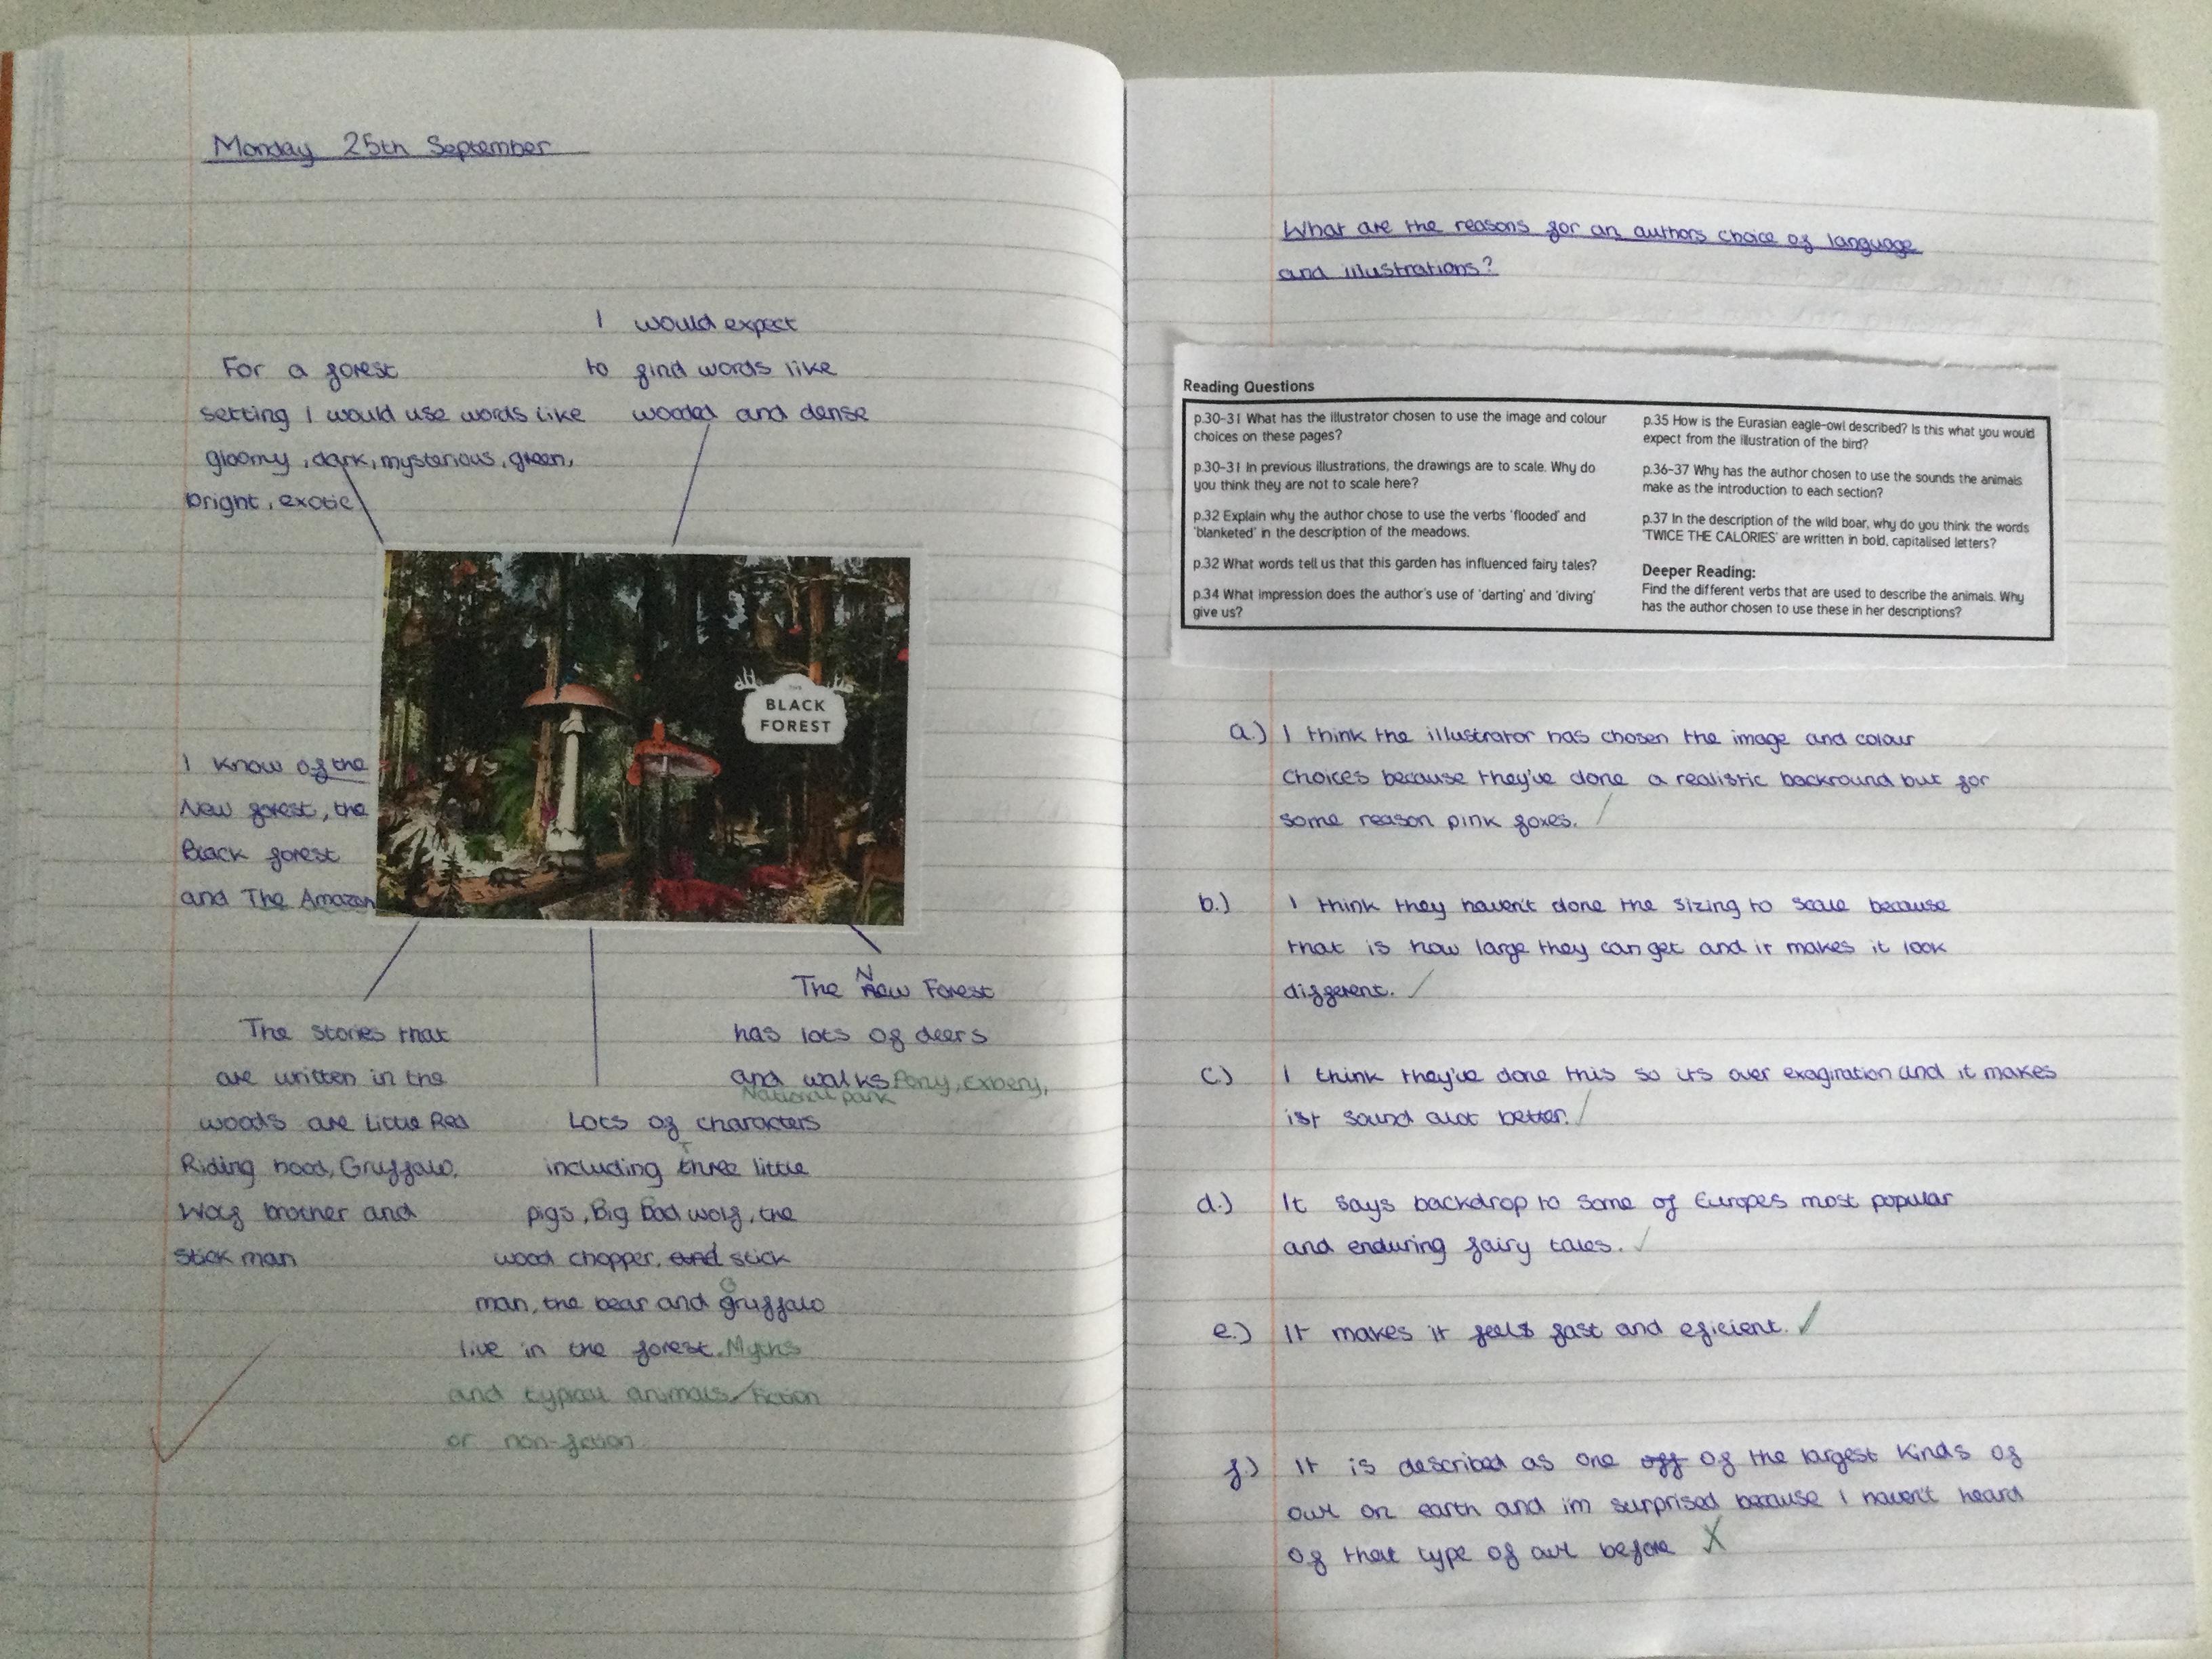 Monday 25th September
For a forest
setting I would use words like
gloomy, dark, mysterious, green,
bright, exotic
I would expect
to find words like
wooded and dense
THE
BLACK
FOREST
I know of the
New forest, the
Black forest
and The Amazon
The stories that
are written in the
woods are Little Red
Riding hood, Gruffalo,
Wolf brother and
Stick man
Lots of characters
including Three little
pigs, Big Bad wolf, the
wood chopper, and stick
man, the bear and Gruffalo
live in the forest. Myths
and typical animals/Fiction
or non-fiction
The New Forest
has lots of deers
and walks Pony, Exbery,
National park
What are the reasons for an authors choice of language
and illustrations?
Reading Questions
p.30-31 What has the illustrator chosen to use the image and colour
choices on these pages?
p.30-31 In previous illustrations, the drawings are to scale. Why do
you think they are not to scale here?
p.32 Explain why the author chose to use the verbs 'flooded' and
'blanketed' in the description of the meadows.
p.32 What words tell us that this garden has influenced fairy tales?
p.34 What impression does the author's use of 'darting' and 'diving'
give us?
p.35 How is the Eurasian eagle-owl described? Is this what you would
expect from the illustration of the bird?
p.36-37 Why has the author chosen to use the sounds the animals
make as the introduction to each section?
p.37 In the description of the wild boar, why do you think the words
'TWICE THE CALORIES' are written in bold, capitalised letters?
Deeper Reading:
Find the different verbs that are used to describe the animals. Why
has the author chosen to use these in her descriptions?
a.) I think the illustrator has chosen the image and colour
choices because they've done a realistic backround but for
some reason pink foxes.
b.) I think they haven't done the sizing to scale because
that is how large they can get and it makes it look
different.
c.) I think they've done this so its over exagiration and it makes
it sound alot better.
d.) It says backdrop to some of Europes most popular
and enduring fairy tales.
e.) It makes it feel fast and eficient.
f.) It is described as one off of the largest kinds of
owl on earth and im surprised because I haven't heard
of that type of owl before